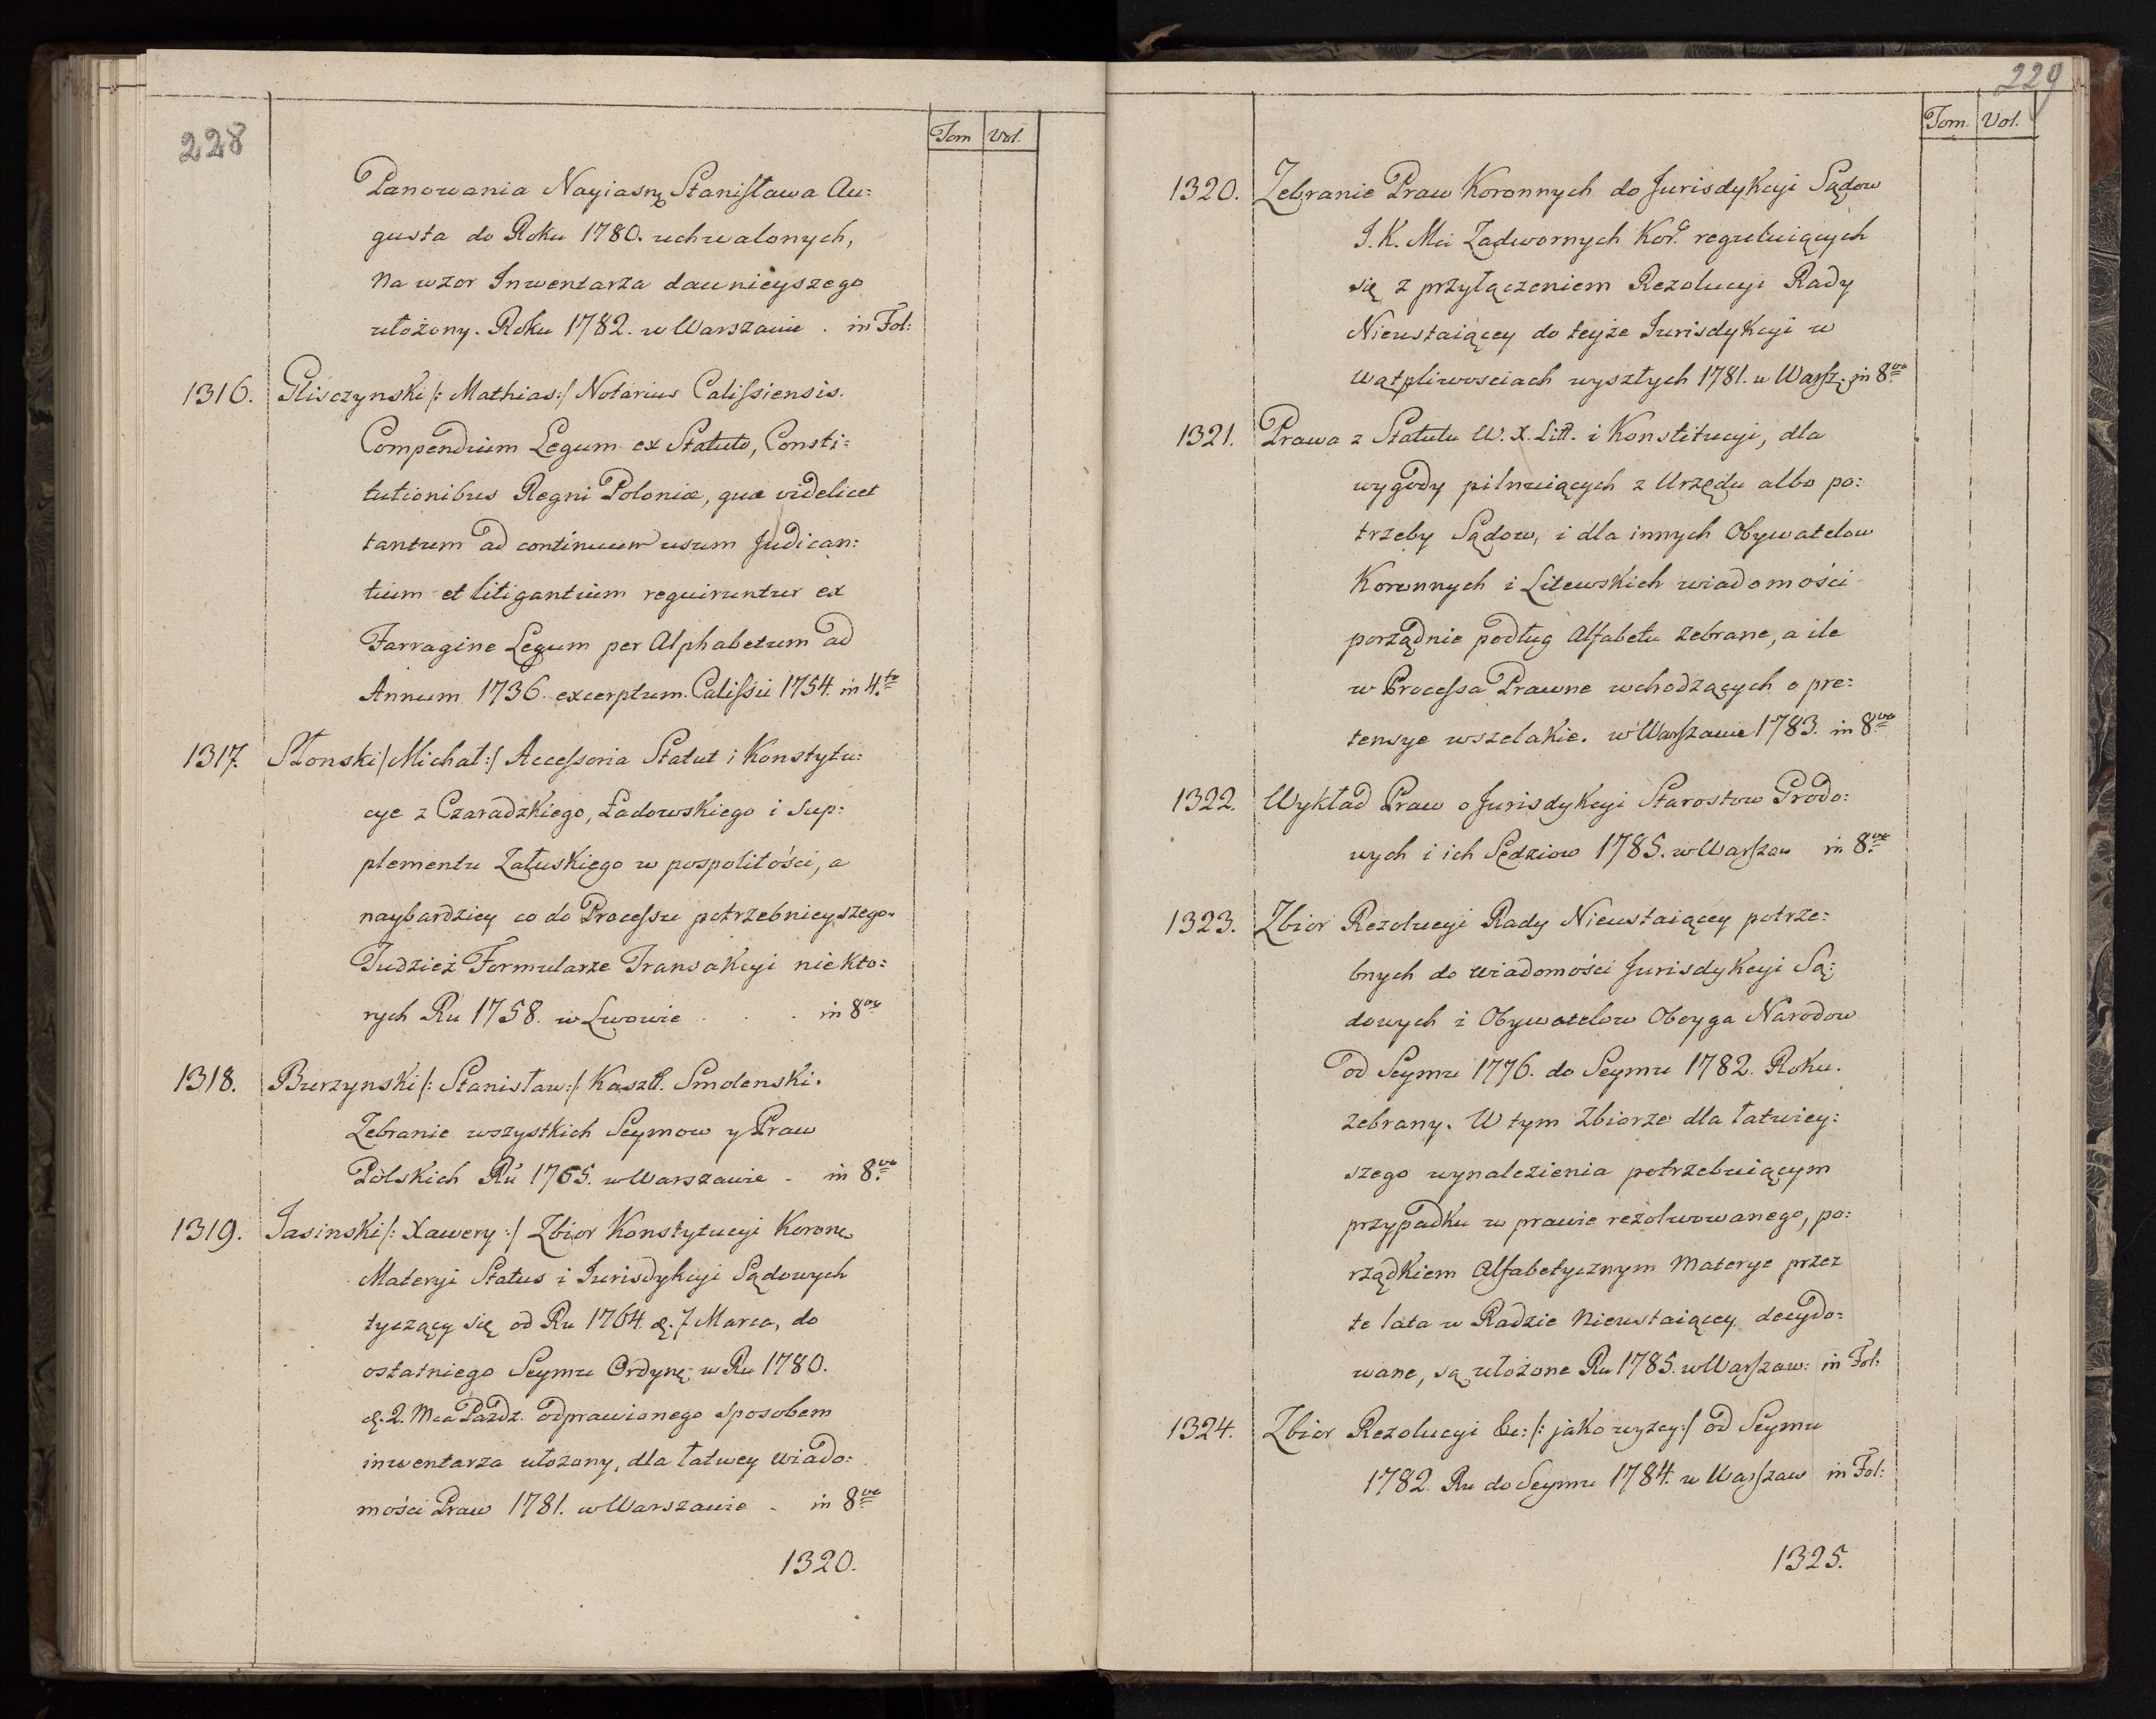 228
Tom Vol.
Panowania Nayiasn. Stanisława Au:
gusta do Roku 1780. uchwalonych,
na wzor Inwentarza dawnieyszego
ułożony. Roku 1782. w Warszawie. in Fol:
1316. Gliszczynski /: Mathias :/ Notarius Calissiensis.
Compendium Legum ex Statuto, Consti:
tutionibus Regni Poloniæ, quæ videlicet
tantum ad continuum usum Judican:
tium et litigantium requiruntur ex
Farragine Legum per Alphabetum ad
Annum 1736. excerptum. Calissii 1754. in 4.to
1317. Słonski / Michał :/ Accessoria Statut i Konstytu:
cye z Czaradzkiego, Ładowskiego i Sup:
plementu Załuskiego w pospolitości, a
naybardziey co do Processu potrzebnieyszego.
Tudzież Formularze Transakcyi niekto:
rych Ru 1758. w Lwowie . . . in 8vo
1318. Burzynski /: Stanisław :/ Kasztl. Smolenski.
Zebranie wszystkich Seymow y Praw
Polskich Ru 1765. w Warszawie - in 8.vo
1319. Jasinski /: Xawery :/ Zbior Konstytucyi Koron.
Materyi Status i Jurisdykcyi Sądowych
tyczący się od Ru 1764. d. 7 Marca, do
ostatniego Seymu Ordyn. w Ru 1780.
d. 2. Mca Pazdz. odprawionego sposobem
inwentarza ułożony, dla łatwey wiado:
mości Praw 1781. w Warszawie - in 8.vo
1320.
229
Tom. Vol.
1320. Zebranie Praw Koronnych do Jurisdykcyi Sądow
J. K. Mci Zadwornych Kor. reguluiących
się z przyłączeniem Rezolucyi Rady
Nieustaiącey do teyże Jurisdykcyi w
wątpliwosciach wyszłych 1781. w Warsz. in 8.vo
1321. Prawa z Statutu W. X. Litt. i Konstitucyi, dla
wygody pilnuiących z Urzędu albo po:
trzeby Sądow, i dla innych Obywatelow
Koronnych i Litewskich wiadomości
porządnie podług Alfabetu zebrane, a ile
w Processa Prawne wchodzących o pre:
tensye wszelakie. w Warszawie 1783. in 8.vo
1322. Wykład Praw o Jurisdykcyi Starostow Grodo:
wych i ich Sędziow 1785. w Warszaw in 8.vo
1323. Zbior Rezolucyi Rady Nieustaiącey potrze:
bnych do wiadomości Jurisdykcyi Są:
dowych i Obywatelow Oboyga Narodow
od Seymu 1776. do Seymu 1782. Roku.
zebrany. W tym Zbiorze dla łatwiey:
szego wynalezienia potrzebuiącym
przypadku w prawie rezolwowanego, po:
rządkiem Alfabetycznym materye przez
te lata w Radzie Nieustaiącey decydo:
wane, są ułożone Ru 1785. w Warszaw: in Fol:
1324. Zbior Rezolucyi &c: /: jako wyzey :/ od Seymu
1782. Ru do Seymu 1784. w Warszaw in Fol:
1325.